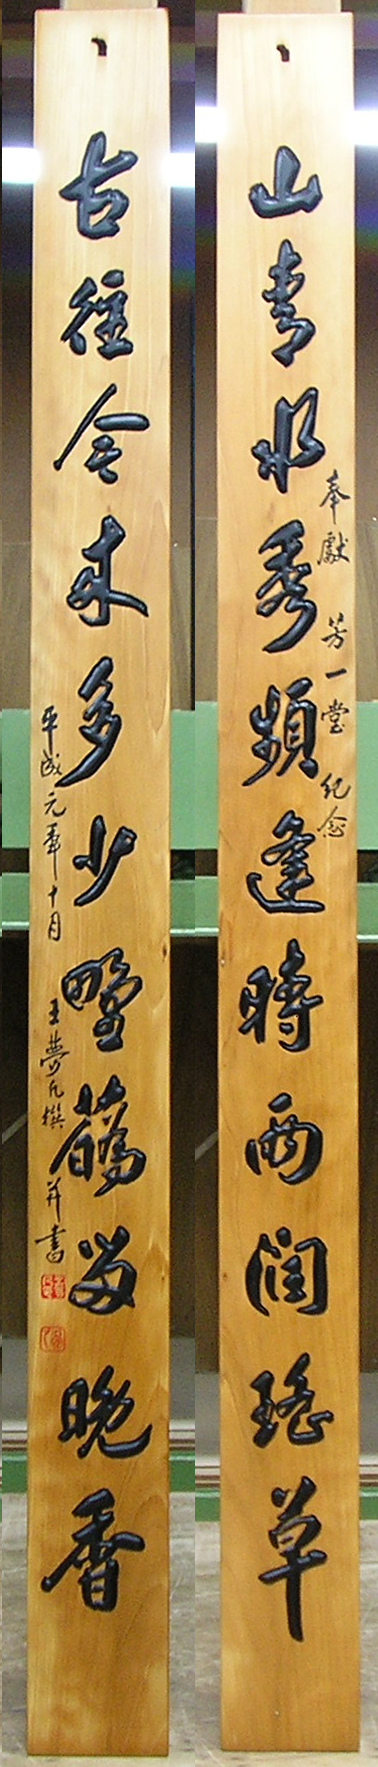 山青水秀頻逢時雨潤瑤草
奉獻 芳一堂 紀念
古往今来多少野蘤留晚香
平成元年十月 王夢凡撰并書